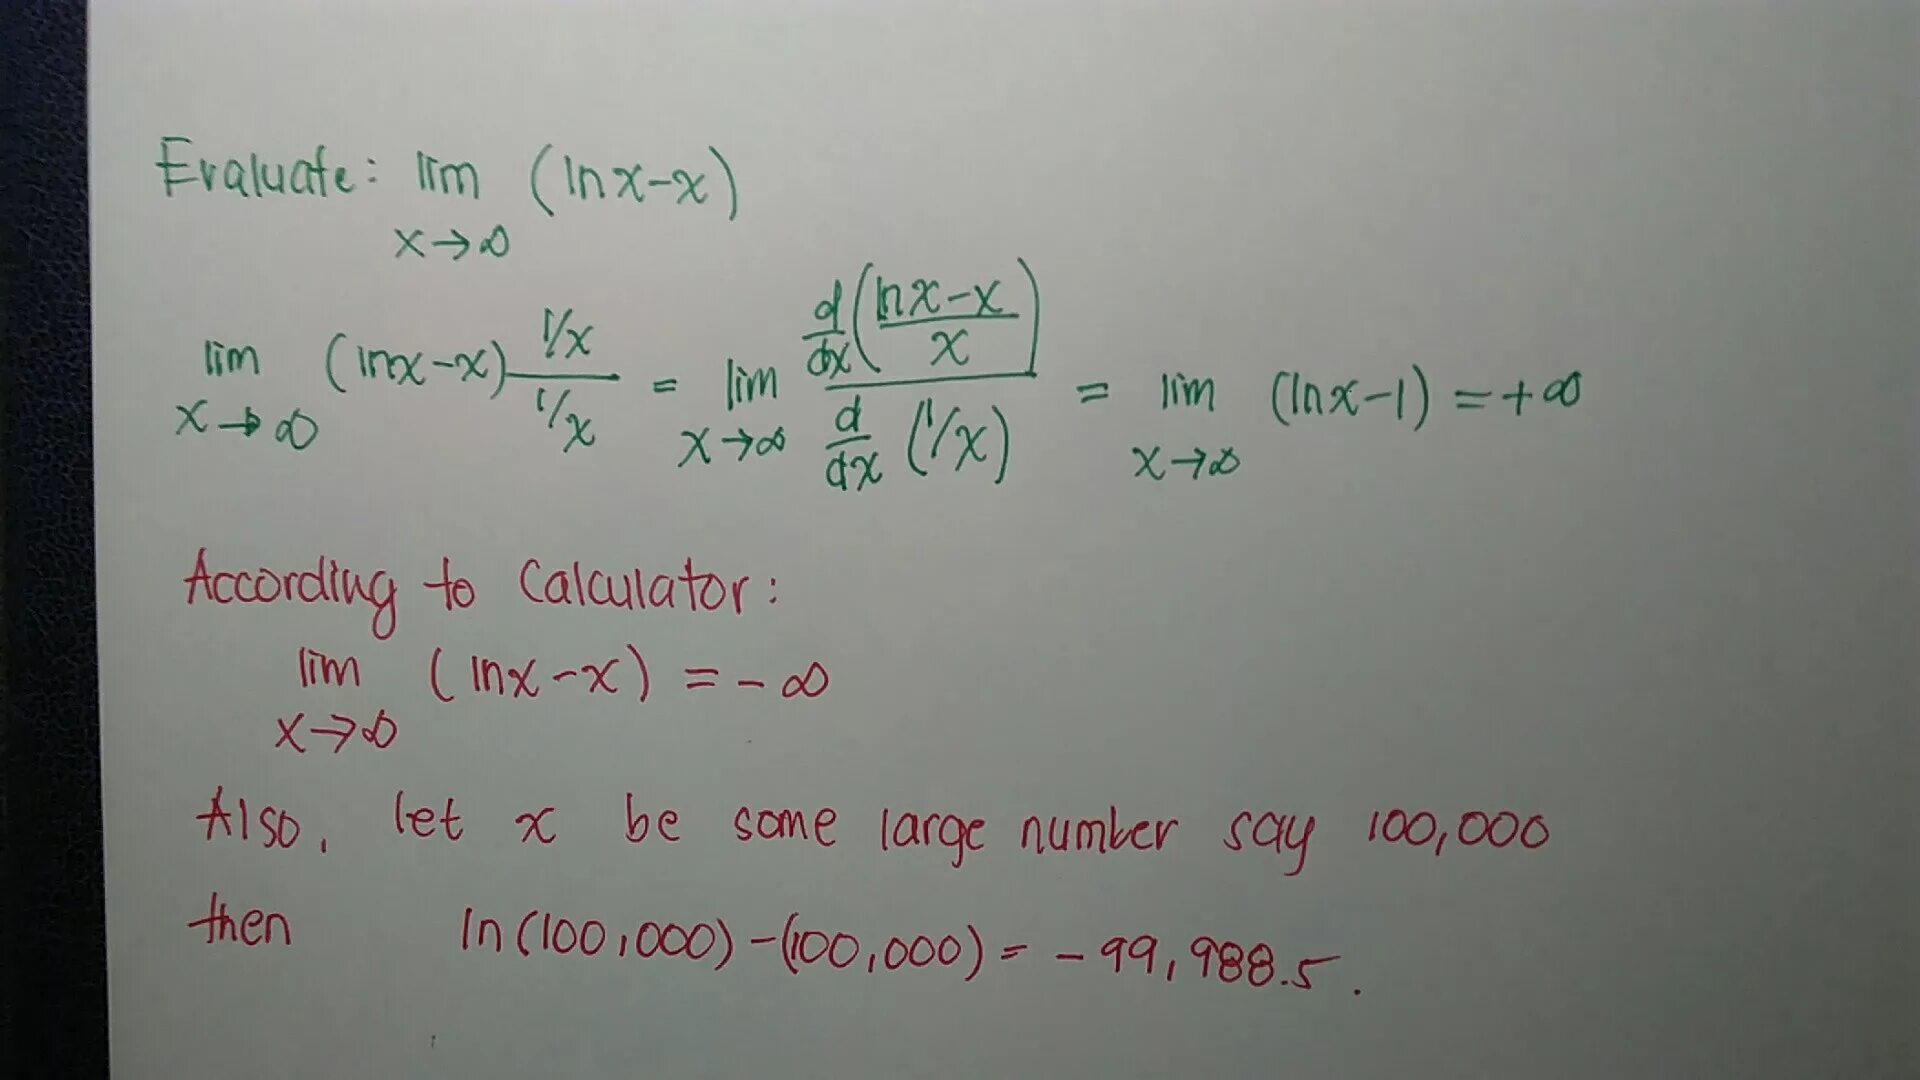 Evaluate: lim (ln x - x)
x → ∞
lim (ln x - x) 1/x / 1/x = lim d/dx((ln x - x)/x) / d/dx (1/x) = lim (ln x - 1) = + ∞
x → ∞ x → ∞ x → ∞
According to Calculator:
lim (ln x - x) = - ∞
x → ∞
Also, let x be some large number say 100,000
then ln(100,000) - (100,000) = - 99,988.5.